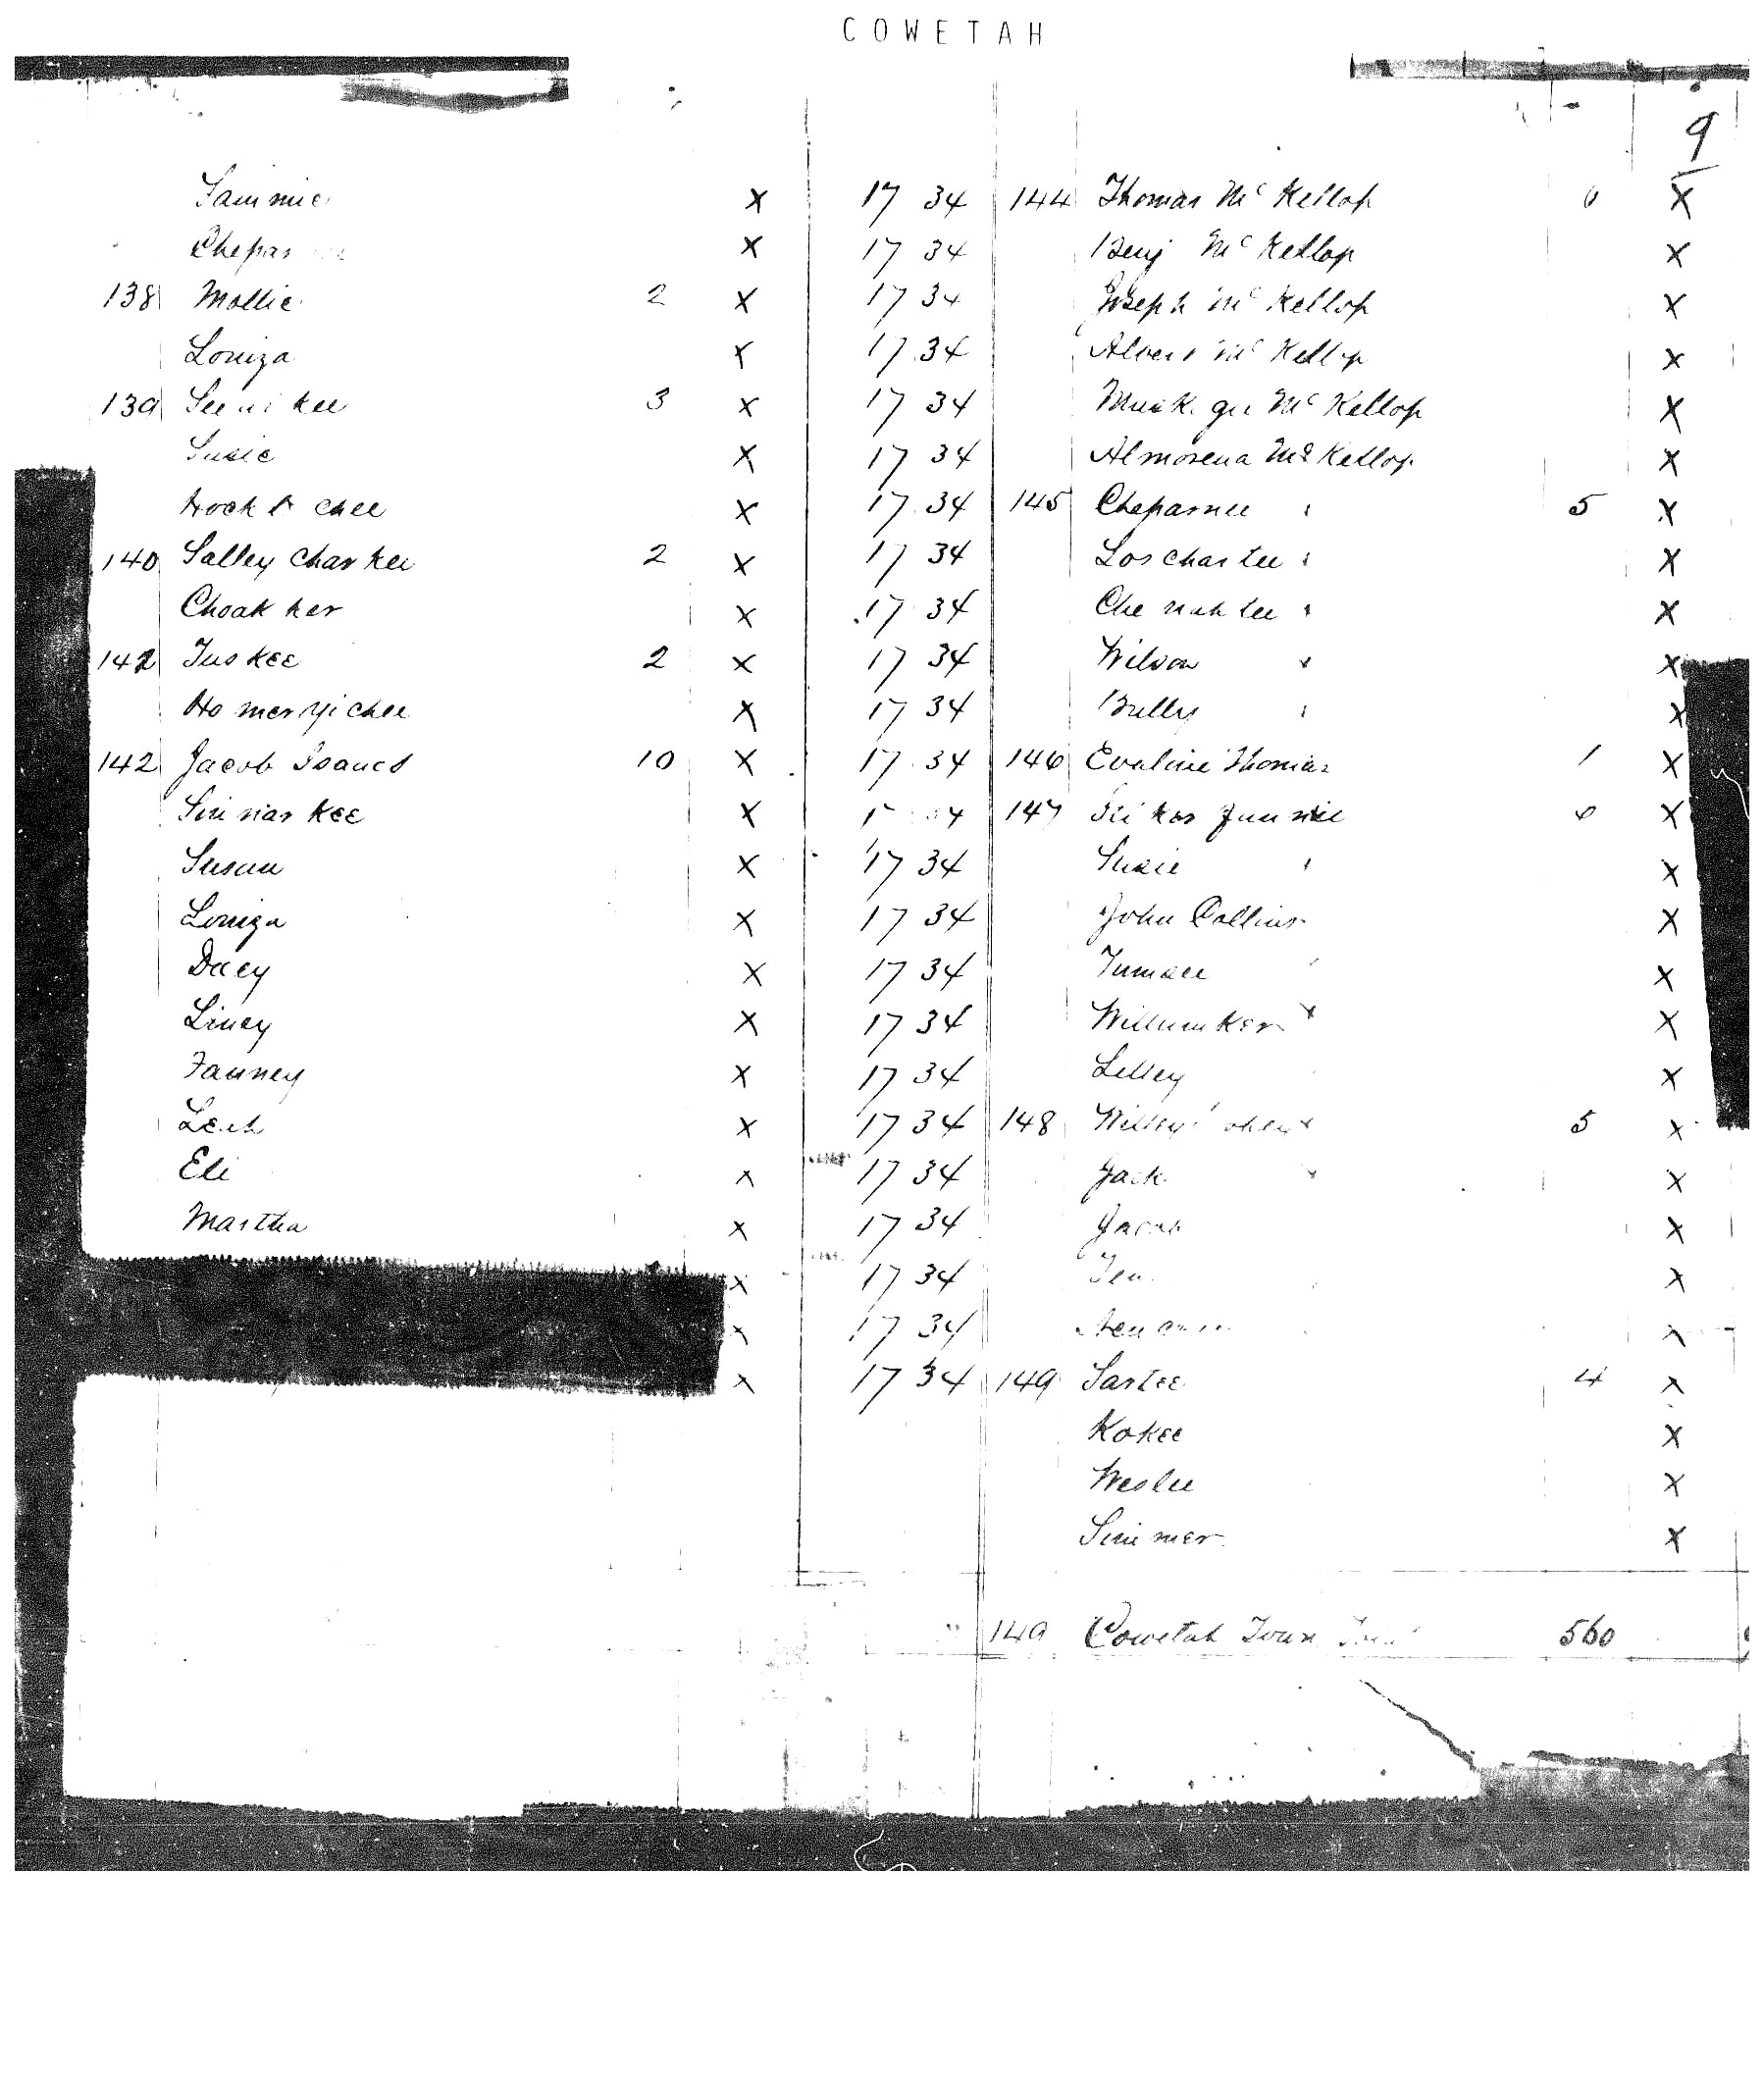 COWETAH
9
Sammie X 17 34
Chepar X 17 34
138 Mollie 2 X 17 34
Louiza X 17 34
139 See kee 3 X 17 34
Susie X 17 34
X 17 34
140 Salley Charkee 2 X 17 34
Choakker X 17 34
142 Tuskee 2 X 17 34
Homeryichee X 17 34
142 Jacob Isaacs 10 X 17 34
Sinnarkee X 34
Susan X 17 34
Louiza X 17 34
Dacy X 17 34
Liney X 17 34
Fanney X 17 34
Leah X 17 34
Eli X 17 34
Martha X 17 34
X 17 34
X 17 34
X 17 34
144 Thomas McKellop X
Benj McKellop X
Joseph McKellop X
Albert McKellop X
McKellop X
Almorena McKellop X
145 Cheparnee 5 X
Loschartee X
Chenahtee X
Wilson X
Billy X
146 Evaline Thomas 1 X
147 X
Susie X
John Collins X
Tumsee X
Willumker X
Lilley X
148 Willey 5 X
Jack X
Jacob X
X
X
149 Sartee 4 X
Kokee X
Weslee X
Simmer X
149 Cowetah Town 560